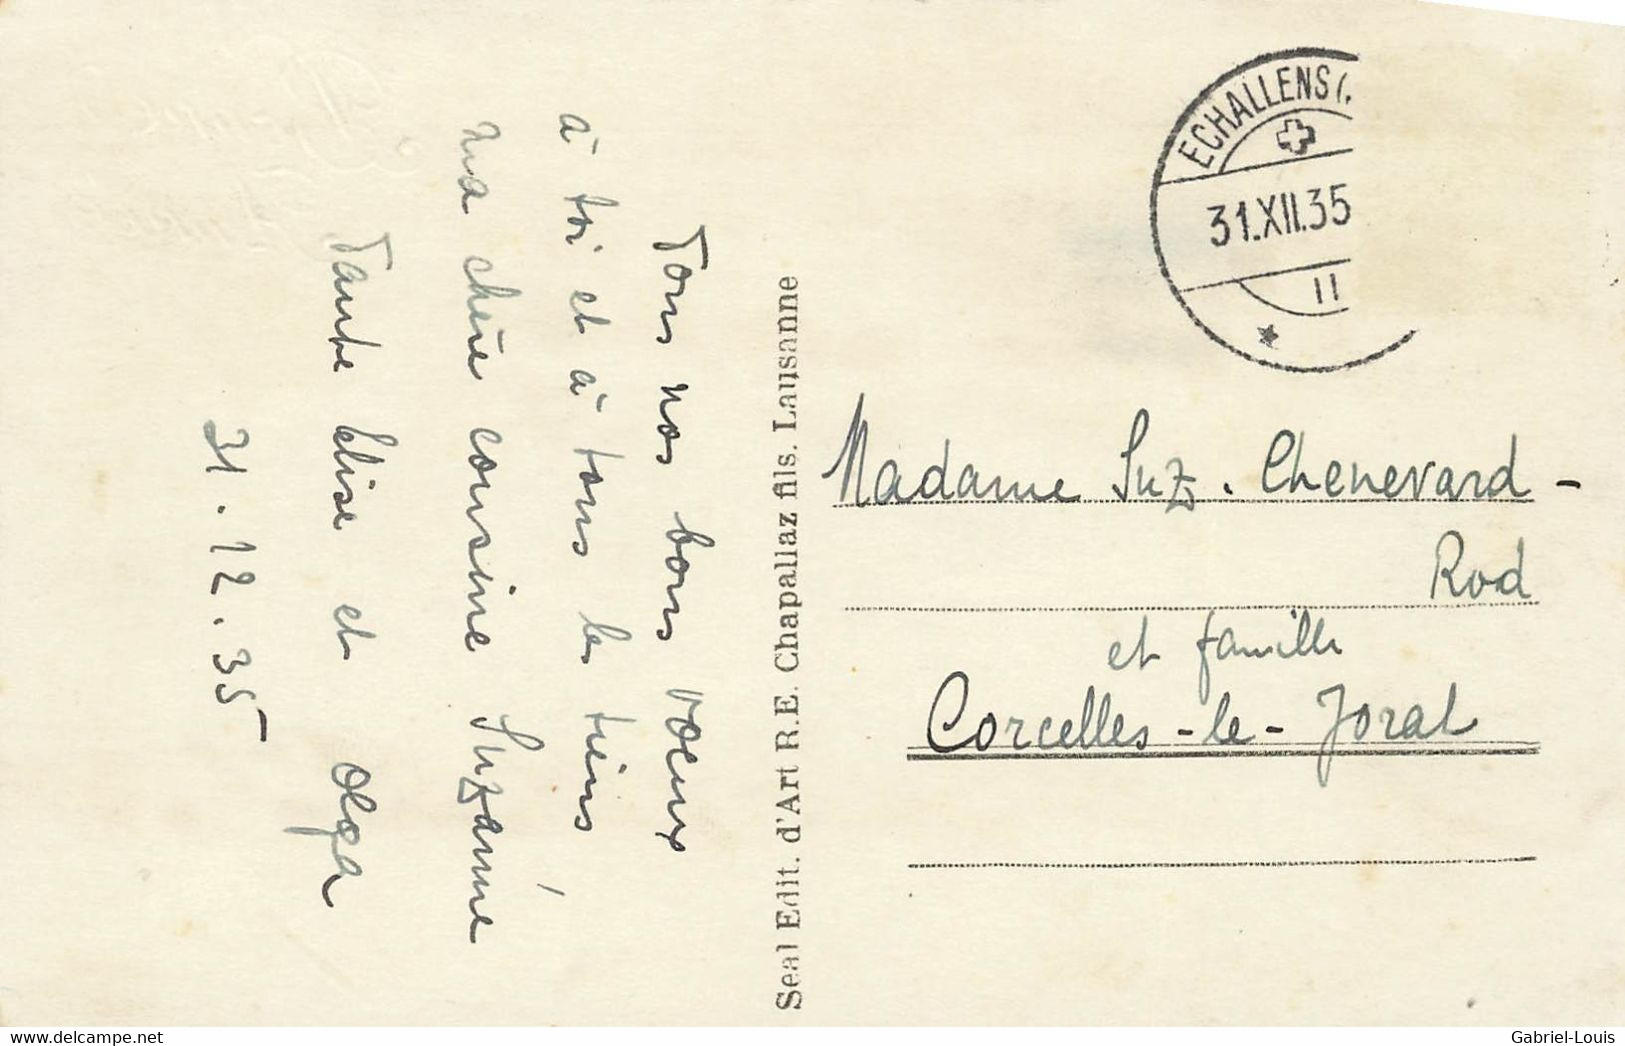 Tous nos bons voeux
à toi et à tous les tiens,
ma chère cousine Suzanne
Tante Elise et Olga
31.12.35
Seal Edit. d'Art R.E. Chapallaz fils. Lausanne
ECHALLENS (.
31.XII.35
11
Madame Suz. Chenevard-
Rod
et famille
Corcelles-le-Jorat
www.delcampe.net
Gabriel-Louis